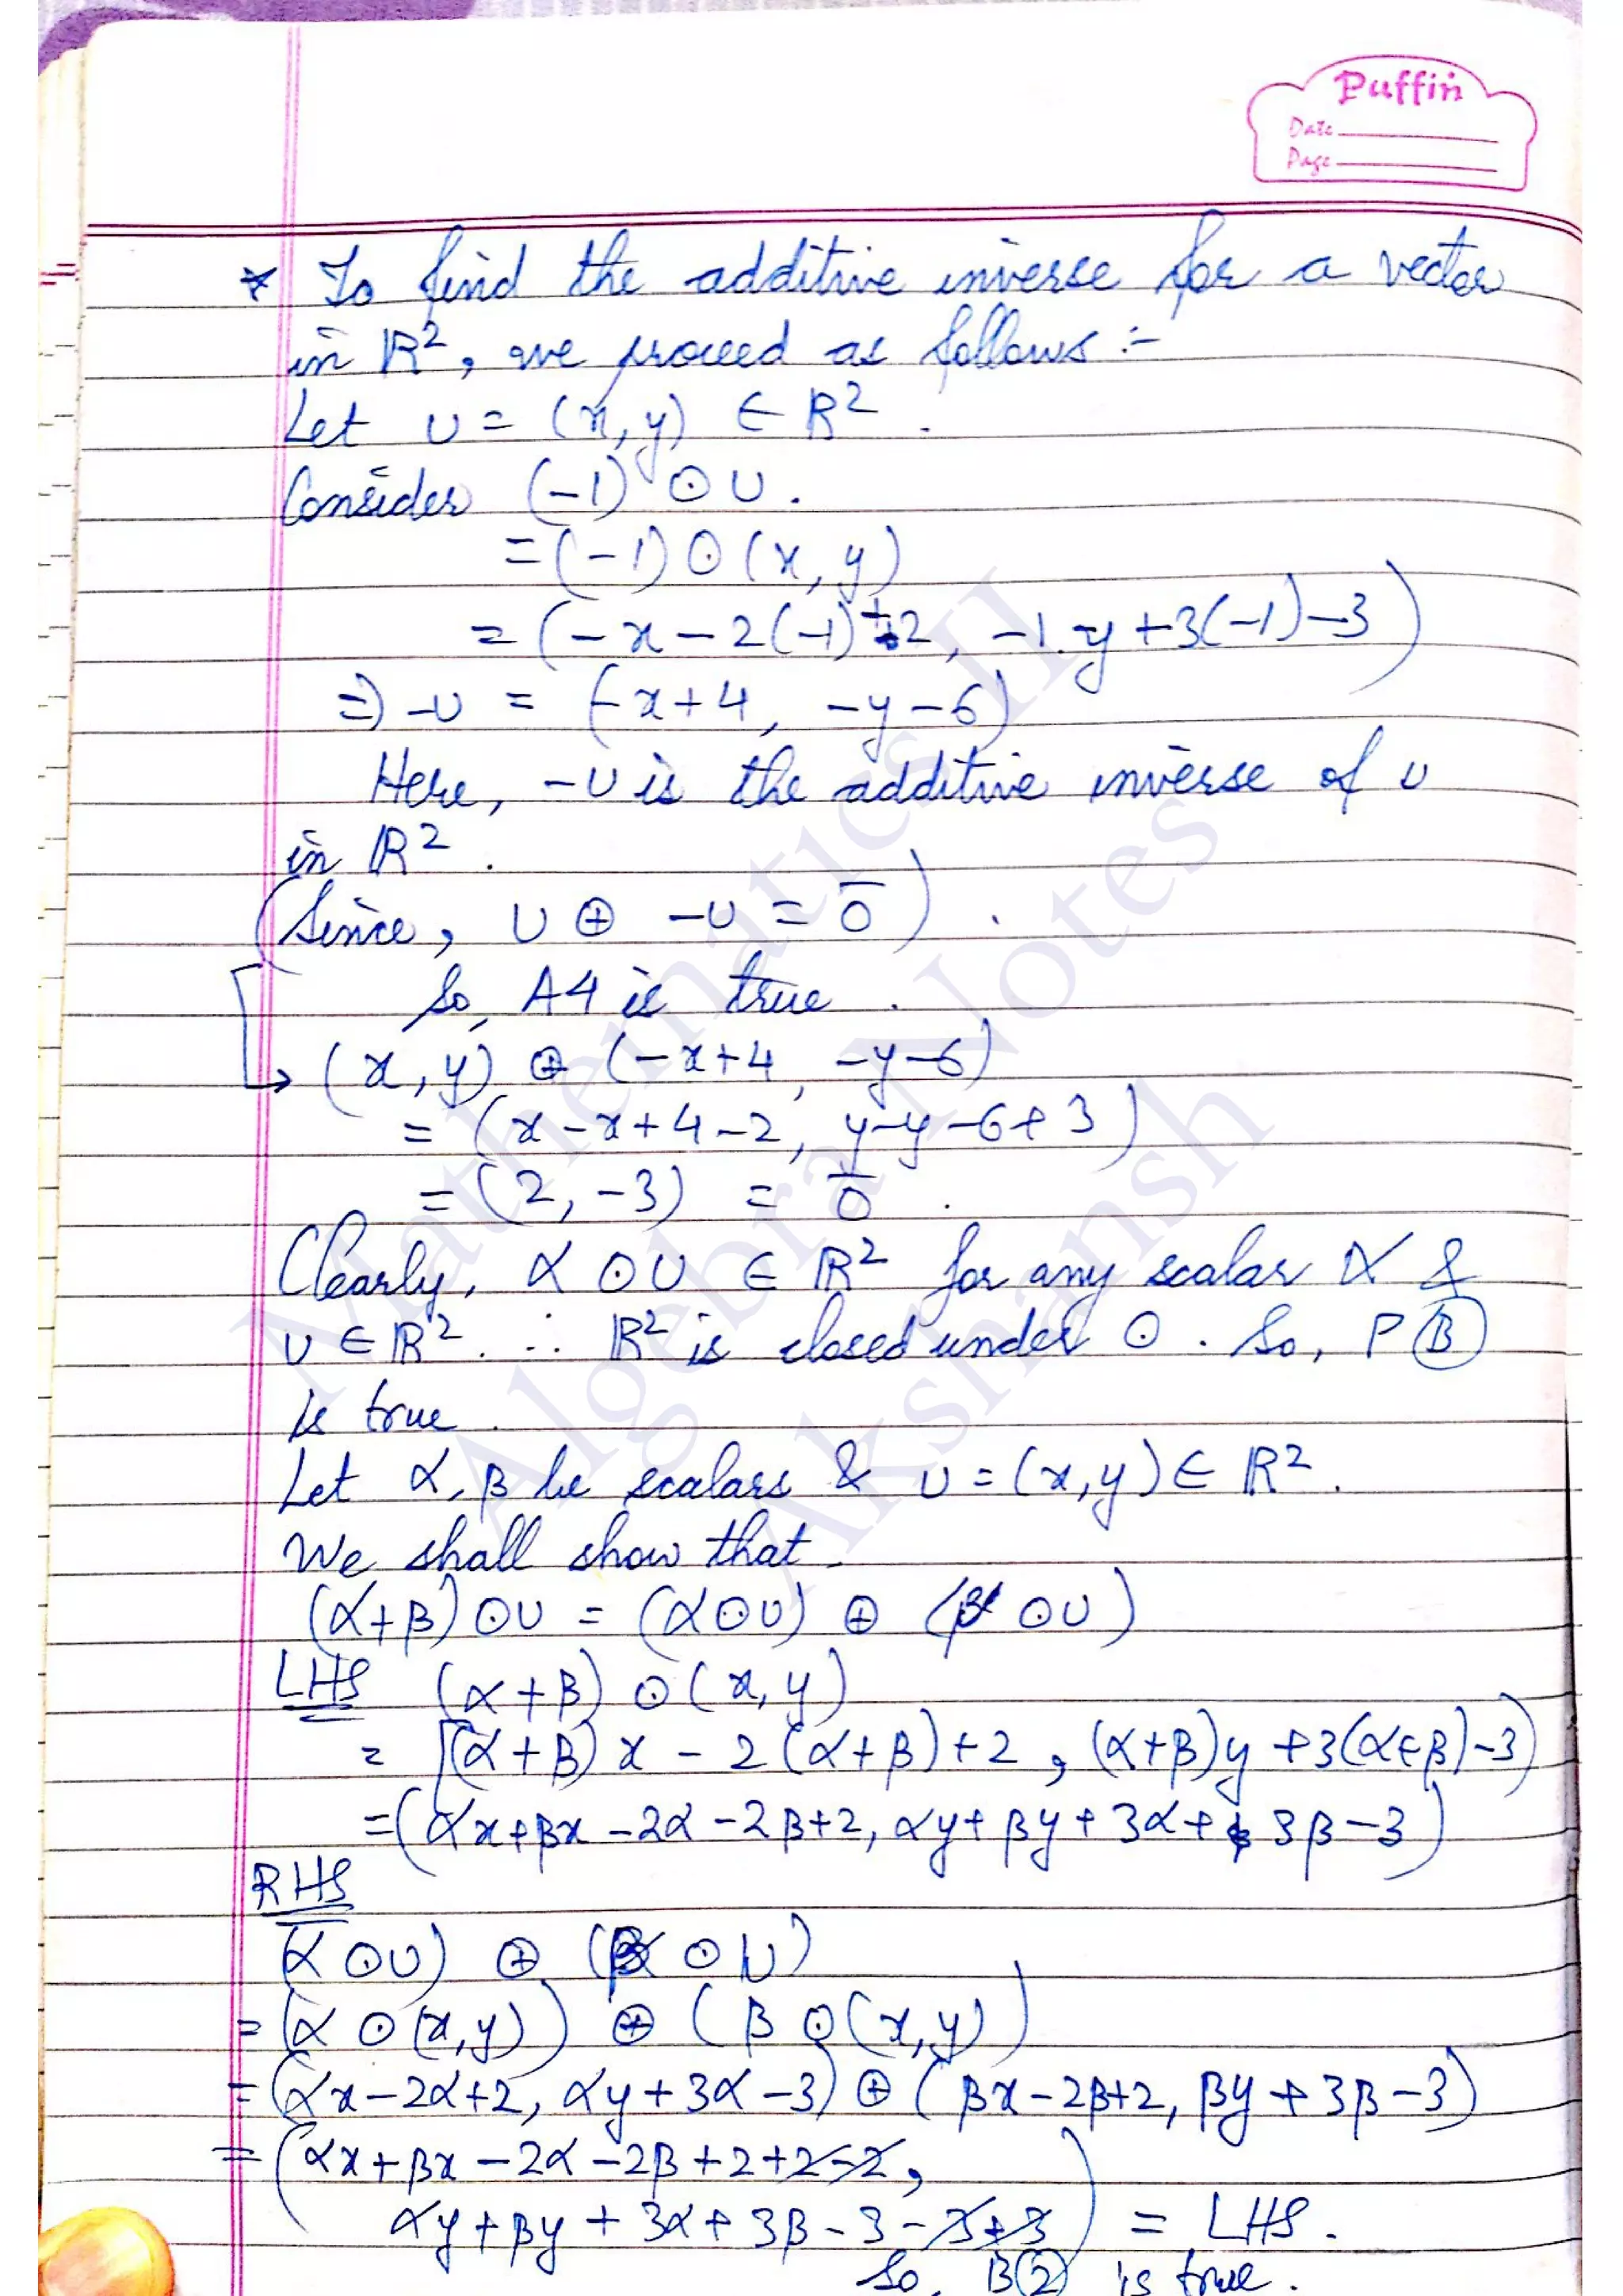 Puffin
Date
Page
* To find the additive inverse for a vector
in ℝ², we proceed as follows :-
Let u = (x, y) ∈ ℝ² .
Consider (-1) ⊙ u .
= (-1) ⊙ (x, y)
= (-x - 2(-1) + 2, -1.y + 3(-1) - 3)
⇒ -u = (-x+4, -y-6)
Here, -u is the additive inverse of u
in ℝ² .
(Since, u ⊕ -u = 0̅) .
So, A4 is true .
→ (x, y) ⊕ (-x+4, -y-6)
= (x-x+4-2, y-y-6+3)
= (2, -3) = 0̅ .
Clearly, α ⊙ u ∈ ℝ² for any scalar α &
u ∈ ℝ² . ∴ ℝ² is closed under ⊙ . So, P Ⓑ
is true .
Let α, β be scalars & u = (x, y) ∈ ℝ² .
We shall show that
(α+β) ⊙ u = (α ⊙ u) ⊕ (β ⊙ u)
LHS (α+β) ⊙ (x, y)
= [(α+β) x - 2(α+β) + 2 , (α+β)y + 3(α+β) - 3)
= (αx + βx - 2α - 2β + 2, αy + βy + 3α + 3β - 3)
RHS
(α ⊙ u) ⊕ (β ⊙ u)
= (α ⊙ (x, y)) ⊕ (β ⊙ (x, y))
= (αx - 2α + 2, αy + 3α - 3) ⊕ (βx - 2β + 2, βy + 3β - 3)
= (αx + βx - 2α - 2β + 2 + 2 - 2,
αy + βy + 3α + 3β - 3 - 3 + 3) = LHS .
So, B② is true .
Mathematics II
Algebra Notes
Akshansh